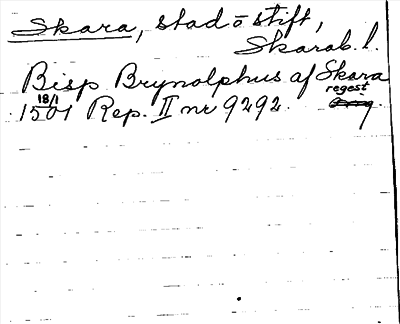 Skara, stad o stift,
Skarab. l.
Bisp Brynolphus af Skara
18/1 regest
1501 Rep. II nr 9292.